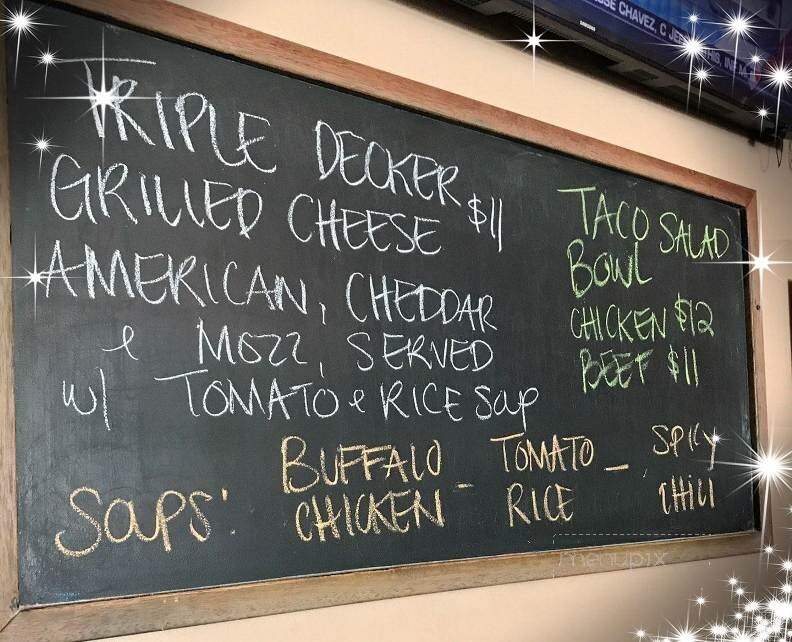 TRIPLE DECKER
GRILLED CHEESE $11
AMERICAN, CHEDDAR
& MOZZ, SERVED
w/ TOMATO & RICE SOUP
TACO SALAD
BOWL
CHICKEN $12
BEEF $11
SOUPS:
BUFFALO
CHICKEN -
TOMATO
RICE -
SPICY
CHILI
menupix
SE CHAVEZ, C JE
SAMSUNG